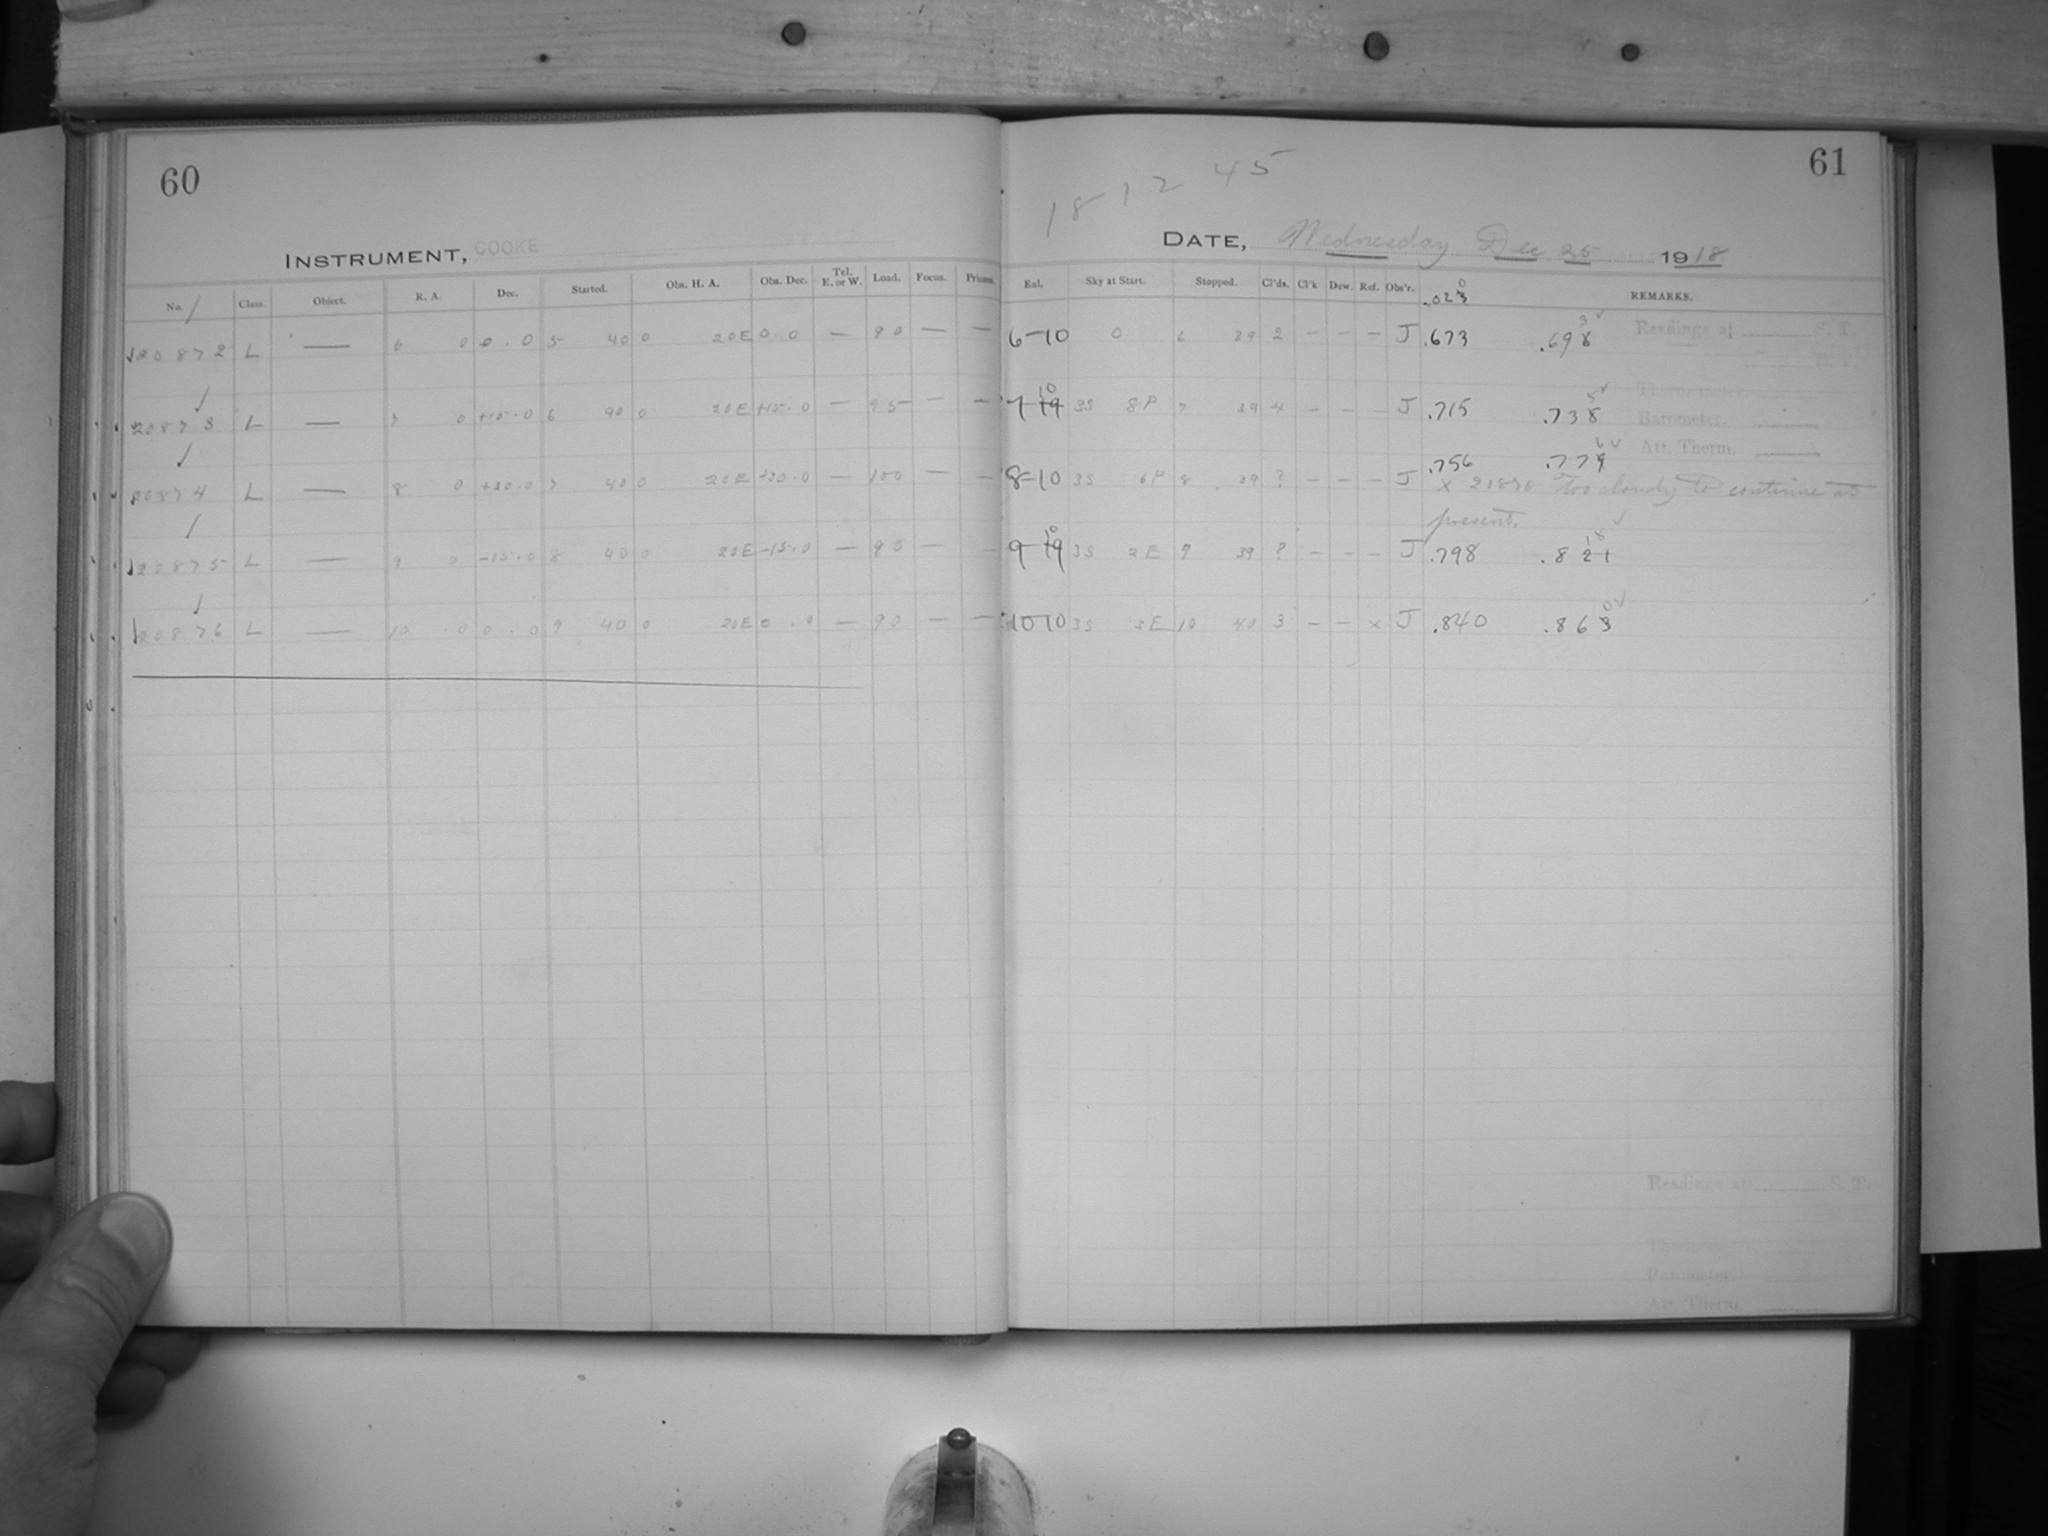 60
INSTRUMENT, COOKE
No. Class. Object. R. A. Dec. Started. Obs. H. A. Obs. Dec. Tel. E. or W. Load. Focus. Prisms.
20872 L — 6 0 0.0 5 40 0 20E 0.0 — 90 — —
20873 L — 7 0 +15.0 6 40 0 20E +15.0 — 95 — —
20874 L — 8 0 +30.0 7 40 0 20E +30.0 — 100 — —
20875 L — 9 0 -15.0 8 40 0 20E -15.0 — 90 — —
20876 L — 10 0 0.0 9 40 0 20E 0.0 — 90 — —
61
18 12 45
DATE, Wednesday Dec 25 1918
Eal. Sky at Start. Stopped. Cl'ds. Cl'k Dew. Ref. Obs'r. REMARKS.
0
.023
6-10 0 6 39 2 — — — J .673 .698 3 ✓
7-19 10 3S 8P 7 39 4 — — — J .715 .738 5 ✓
8-10 3S 6P 8 39 ? — — — J .756 .779 6 ✓
x 20876 Too cloudy to continue at
present.
9-19 10 3S 2E 9 39 ? — — — J .798 .821 18 ✓
10-10 3S 3E 10 40 3 — — x J .840 .863 0 ✓
Readings at S. T.
Barometer.
Att. Therm.
Readings at S. T.
Barometer.
Att. Therm.